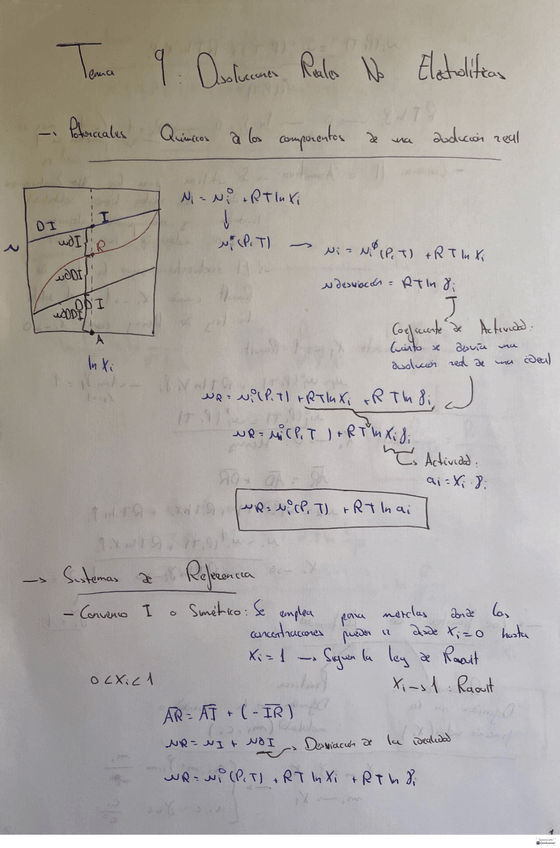 Tema 9: Disoluciones Reales No Electrolíticas
→ Potenciales Químicos de los componentes de una disolución real
μi = μi° + RT ln Xi
μi°(P,T) → μi = μi°(P,T) + RT ln Xi
μdesviación = RT ln γi
DI
I
μdI
R
μdDI
DDI
μDDI
μ
A
ln Xi
Coeficiente de Actividad:
Cuánto se desvía una
disolución real de una ideal
μR = μi°(P,T) + RT ln Xi + RT ln γi
μR = μi°(P,T) + RT ln Xi γi
Actividad:
ai = Xi · γi
μR = μi°(P,T) + RT ln ai
→ Sistemas de Referencia
- Convenio I o Simétrico: Se emplea para mezclas donde las
concentraciones pueden ir desde Xi=0 hasta
Xi=1 → Siguen la ley de Raoult
0<Xi<1
Xi→1: Raoult
AR = AI + (-IR)
μR = μI + μdI → Desviación de la idealidad
μR = μi°(P,T) + RT ln Xi + RT ln γi
1